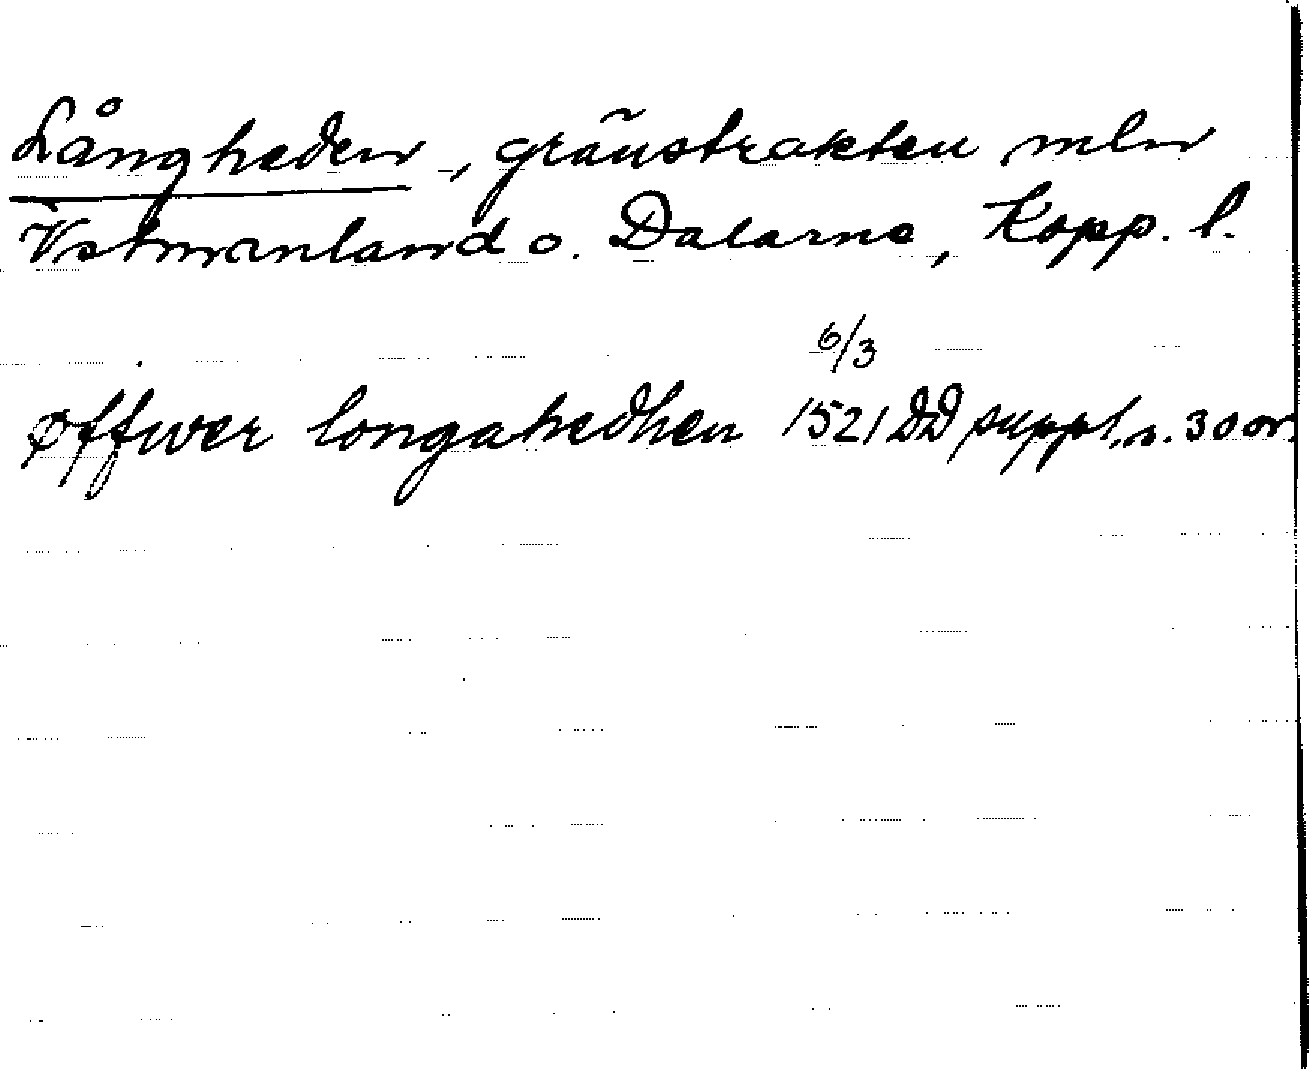 Långheden, gränstrakten mln
Västmanland o. Dalarna, Kopp. l.
6/3
øffwer longahedhen 1521 DD suppl. s. 30 or.